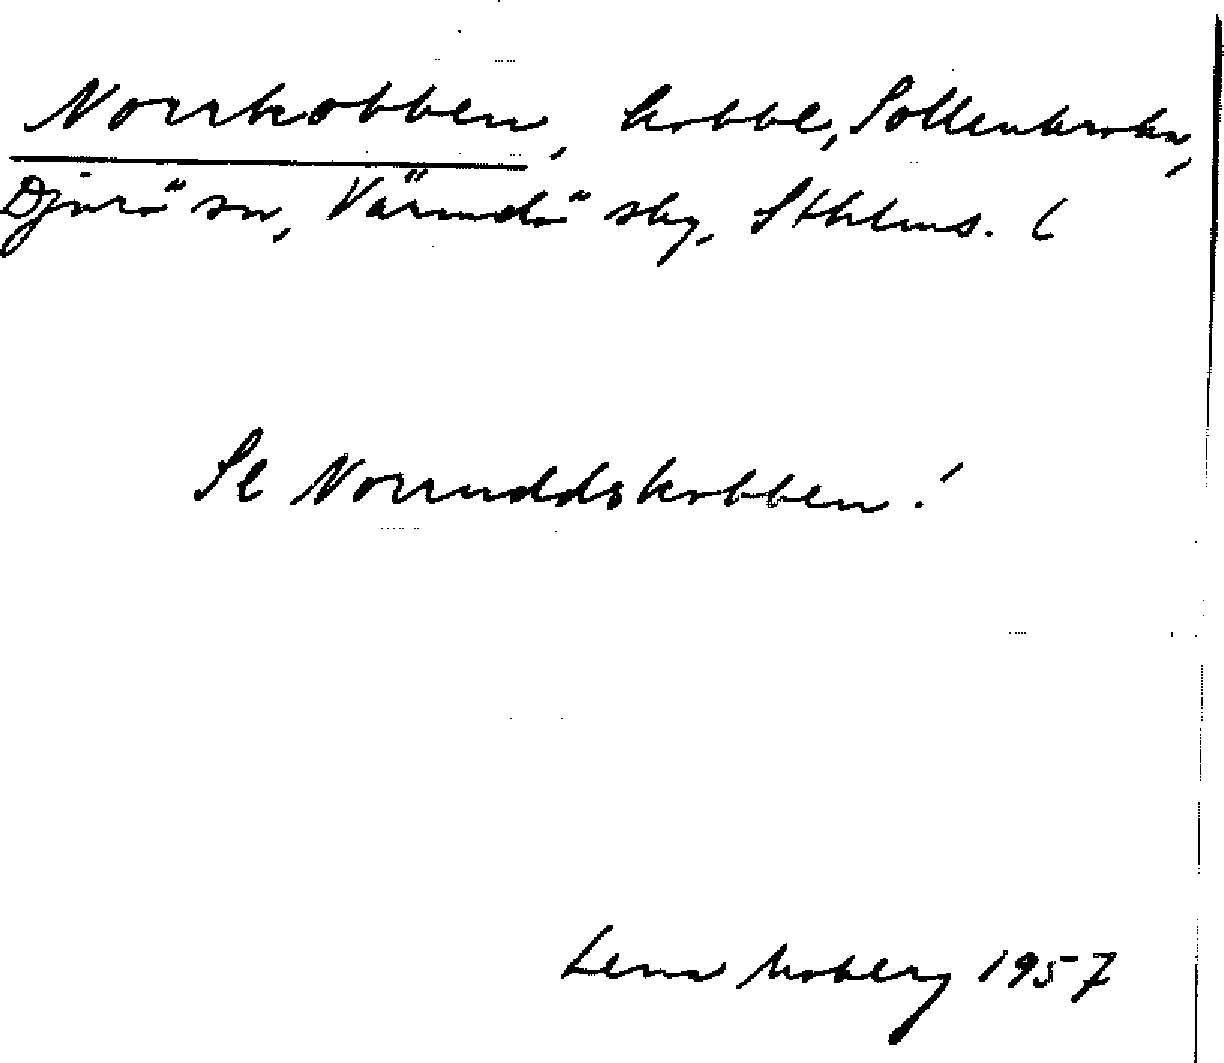 Norrkobben, kobbe, Sollenkroka,
Djurö sn, Värmdö skg, Sthlms. l
Se Norruddskobben!
Lena Moberg 1957